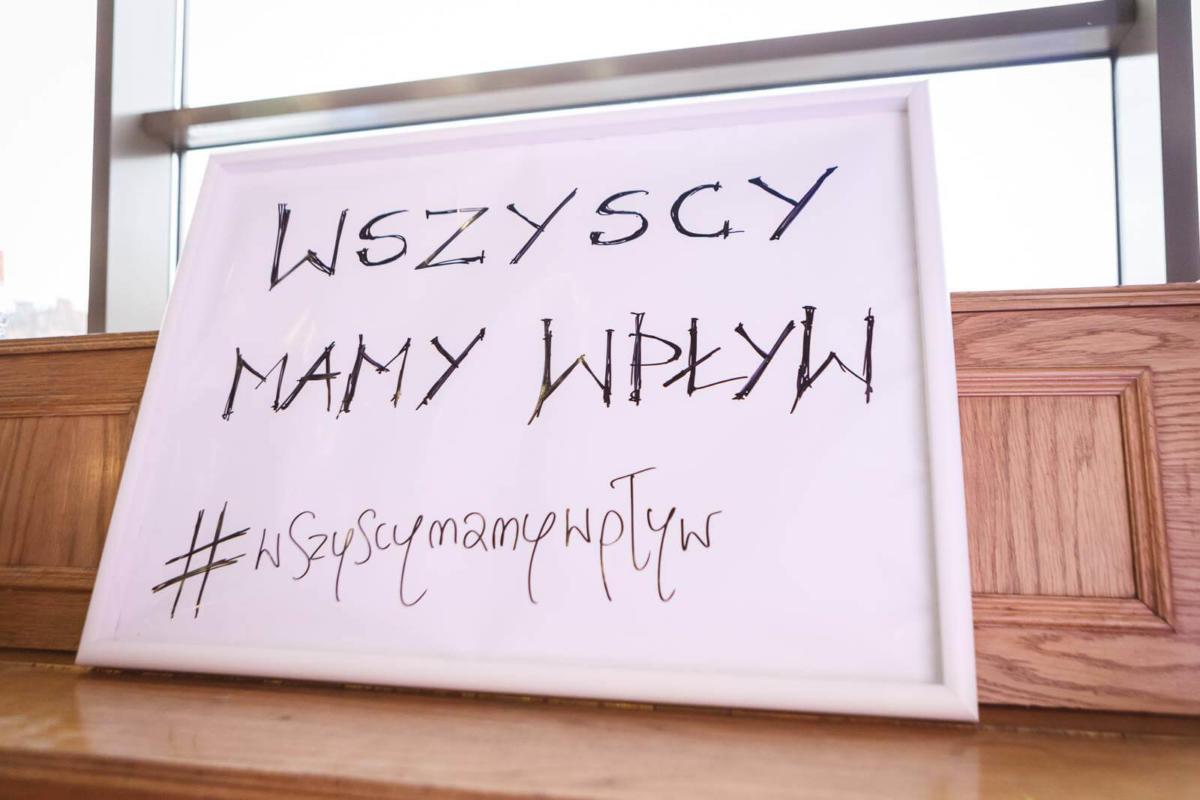 WSZYSCY
MAMY WPŁYW
#wszyscymamywpływ